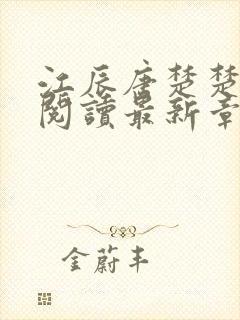 江辰唐楚楚
閱讀最新章
金蔚丰